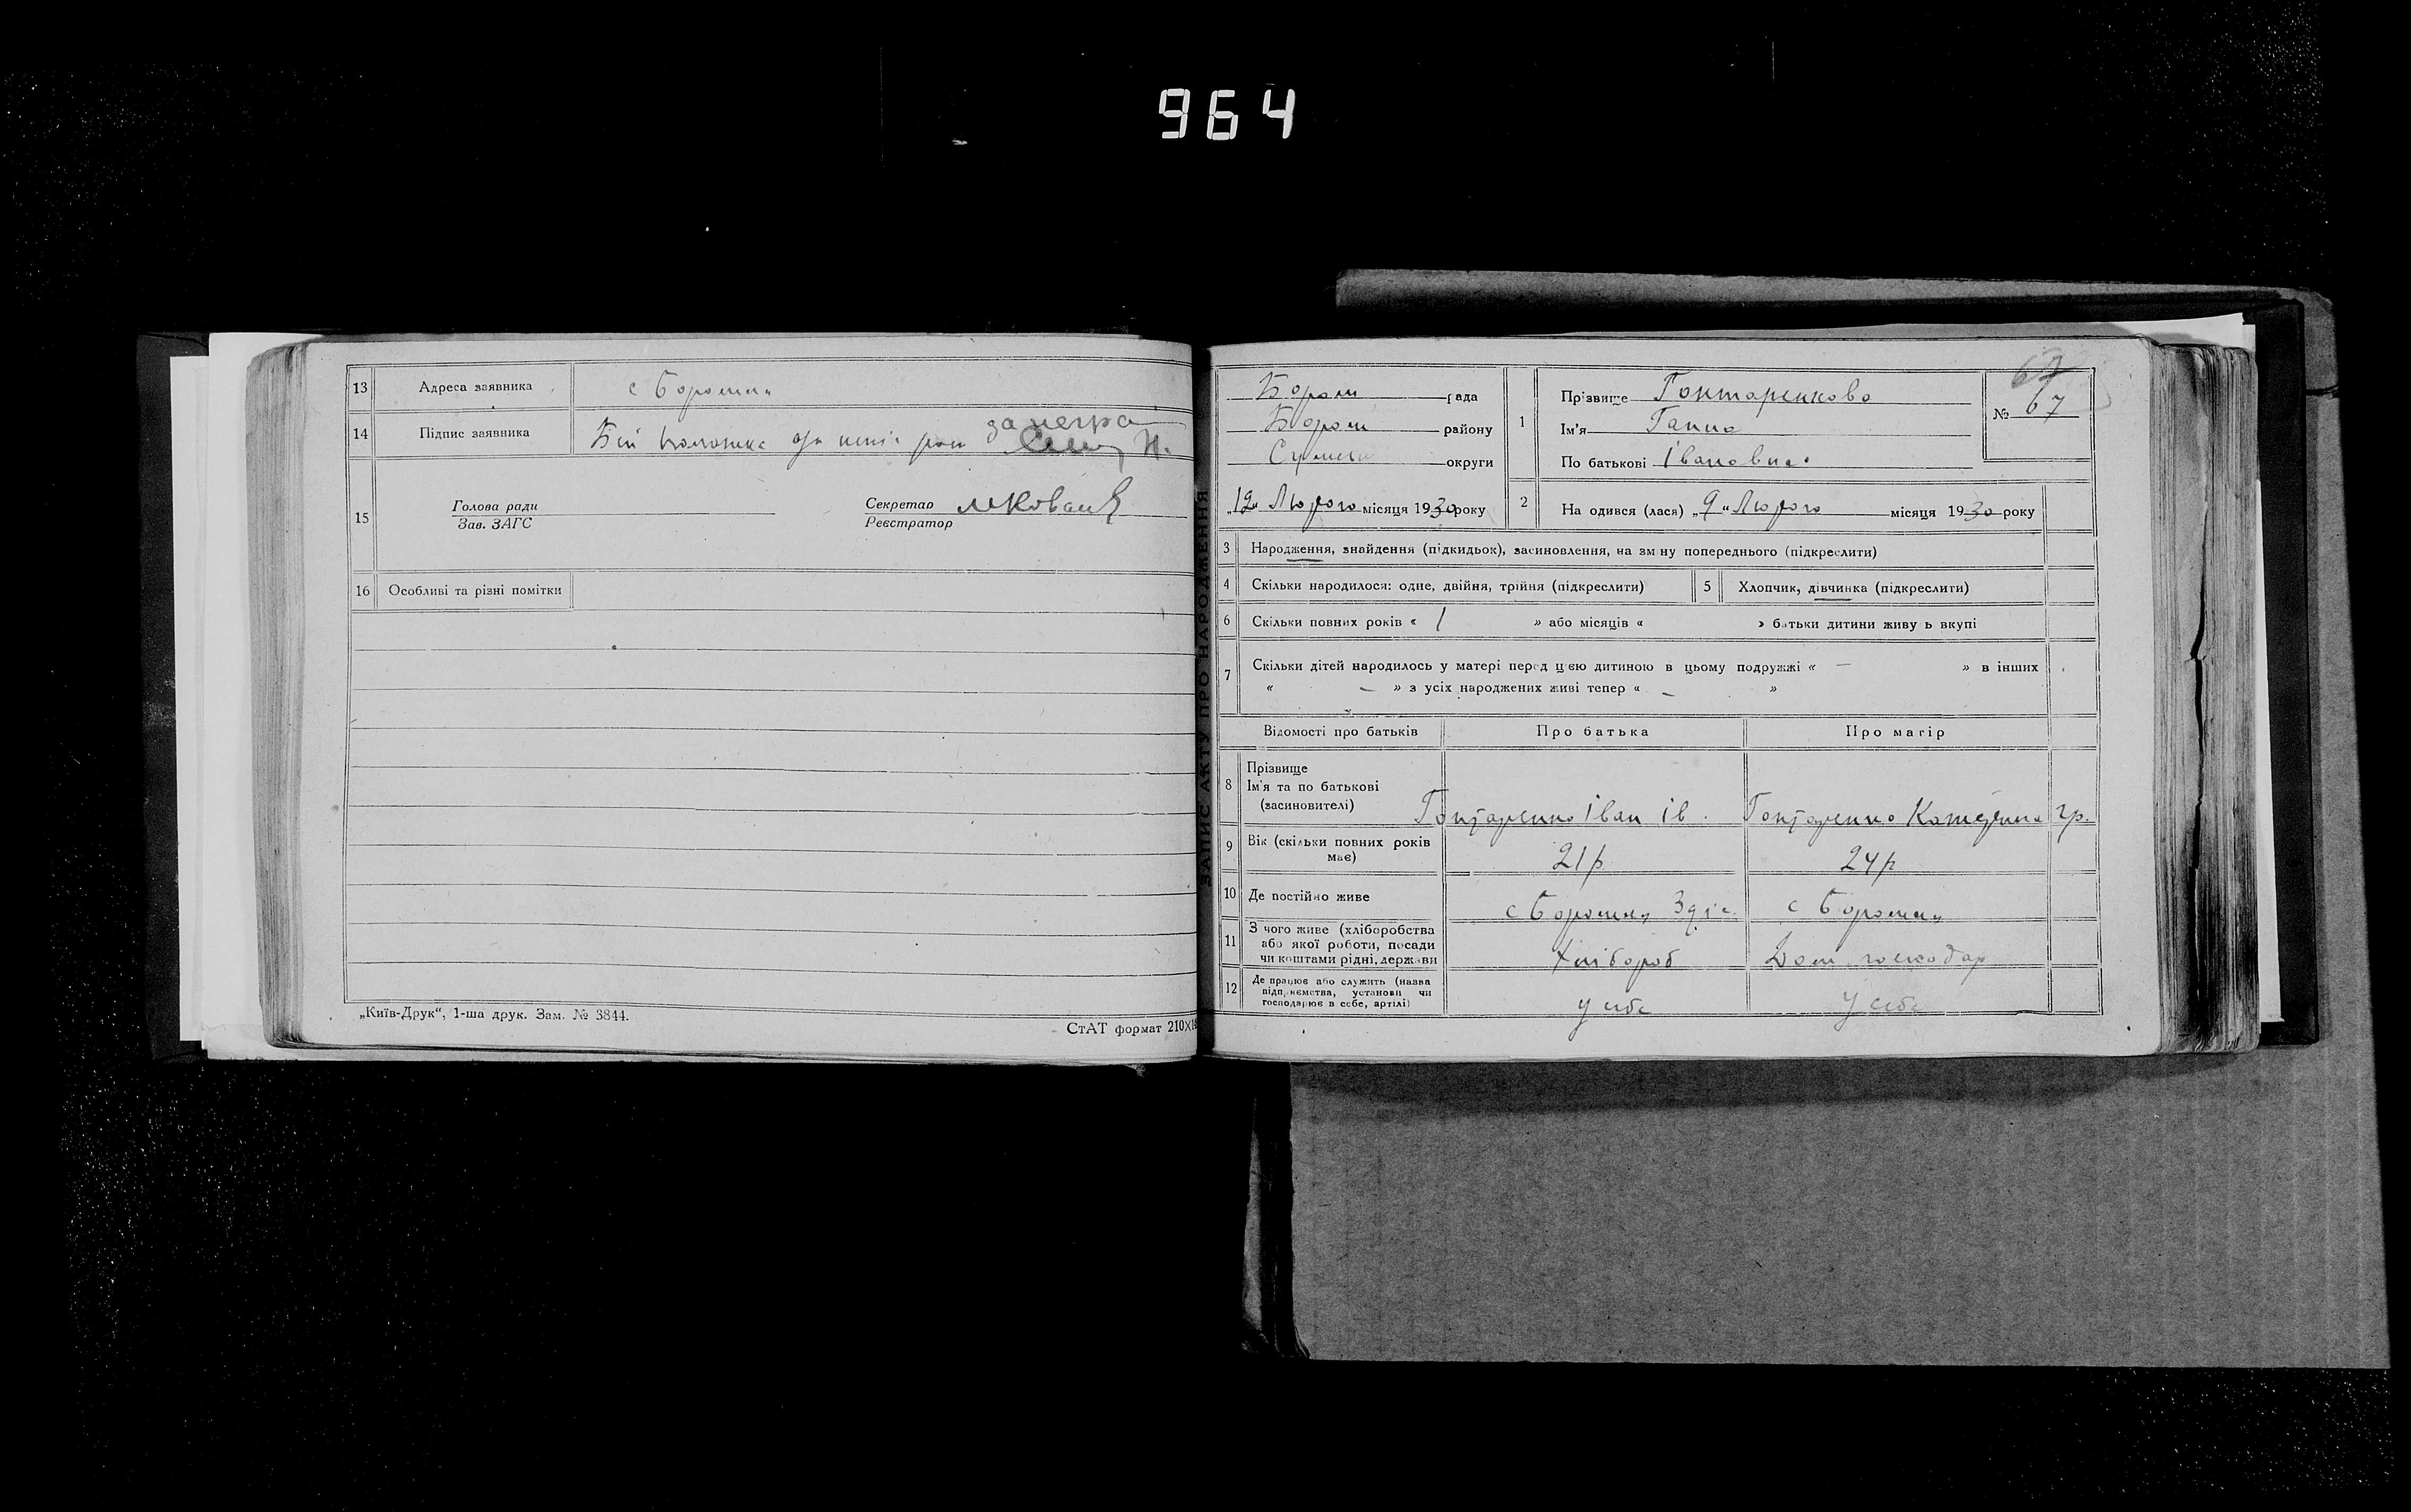 964
13 Адреса заявника с Боромля
14 Підпис заявника
15 Голова ради
Зав. ЗАГС
Секретар
Реєстратор
16 Особливі та різні помітки
„Київ-Друк“, 1-ша друк. Зам. № 3844.
СтАТ формат 210X
ЗАПИС АКТУ ПРО НАРОДЖЕННЯ
Боромл рада
Боромл району
Сумськ округи
„12“ Лютого місяця 1930 року
1 Прізвище Гонтаренково
Ім'я Ганна
По батькові Івановна
67
№ 67
2 На одився (лася) „9“ Лютого місяця 1930 року
3 Народження, знайдення (підкидьок), засиновлення, на зм ну попереднього (підкреслити)
4 Скільки народилося: одне, двійня, трійня (підкреслити)
5 Хлопчик, дівчинка (підкреслити)
6 Скільки повних років « 1 » або місяців « » батьки дитини живу ь вкупі
7 Скільки дітей народилось у матері перед цією дитиною в цьому подружжі « — » в інших
« — » з усіх народжених живі тепер « — »
Відомості про батьків Про батька Про матір
8 Прізвище
Ім'я та по батькові
(засиновителі)
Гонтаренко Іван Ів. Гонтаренко Катерина Гр.
9 Вік (скільки повних років
має)
21 р 24 р
10 Де постійно живе с Боромля с Боромля
11 З чого живе (хліборобства
або якої роботи, посади
чи коштами рідні, держави
Хлібороб Дом. господар
12 Де працює або служить (назва
підприємства, установи чи
господарює в себе, артілі)
у себе у себе